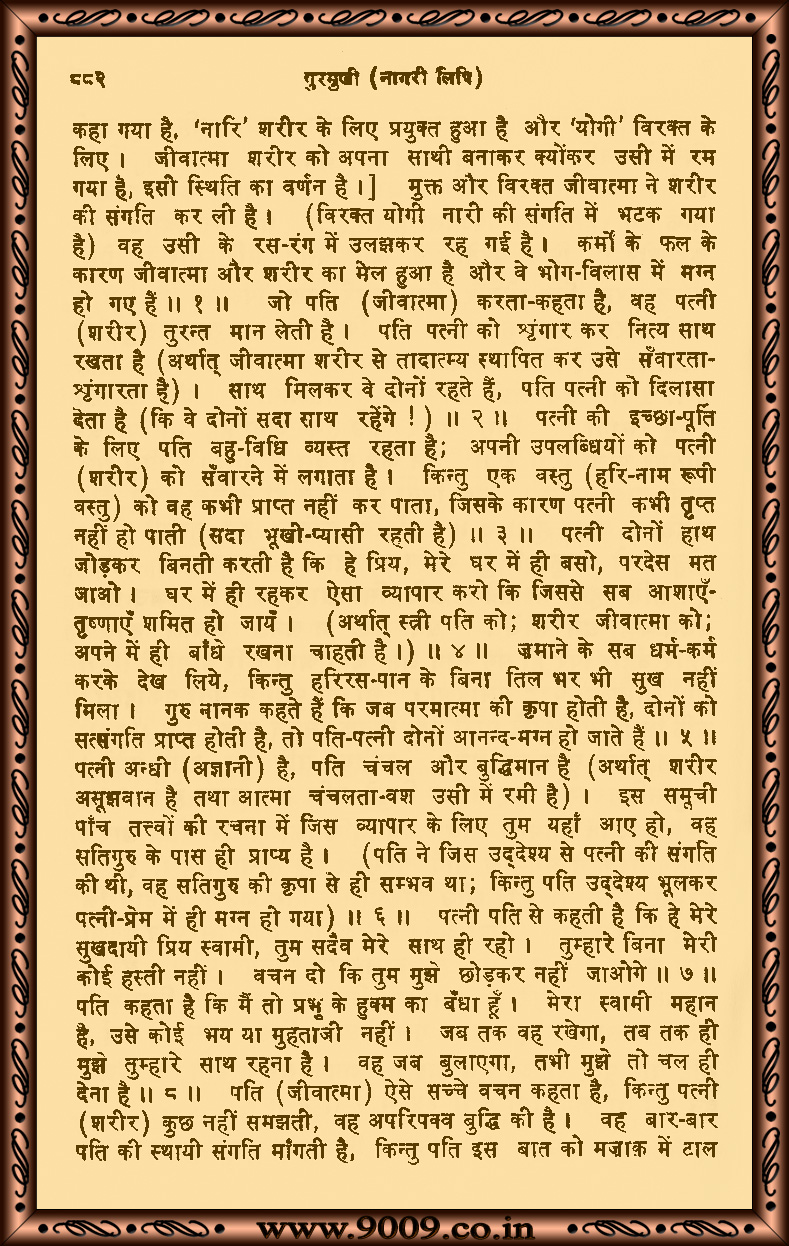 ८८२ गुरमुखी (नागरी लिपि)
कहा गया है, ‘नारि’ शरीर के लिए प्रयुक्त हुआ है और ‘योगी’ विरक्त के
लिए । जीवात्मा शरीर को अपना साथी बनाकर क्योंकर उसी में रम
गया है, इसी स्थिति का वर्णन है । ] मुक्त और विरक्त जीवात्मा ने शरीर
की संगति कर ली है । (विरक्त योगी नारी की संगति में भटक गया
है) वह उसी के रस-रंग में उलझकर रह गई है । कर्मों के फल के
कारण जीवात्मा और शरीर का मेल हुआ है और वे भोग-विलास में मग्न
हो गए हैं ॥ १ ॥ जो पति (जीवात्मा) करता-कहता है, वह पत्नी
(शरीर) तुरन्त मान लेती है । पति पत्नी को शृंगार कर नित्य साथ
रखता है (अर्थात् जीवात्मा शरीर से तादात्म्य स्थापित कर उसे सँवारता-
शृंगारता है) । साथ मिलकर वे दोनों रहते हैं, पति पत्नी को दिलासा
देता है (कि वे दोनों सदा साथ रहेंगे !) ॥ २ ॥ पत्नी की इच्छा-पूर्ति
के लिए पति बहु-विधि व्यस्त रहता है; अपनी उपलब्धियों को पत्नी
(शरीर) को सँवारने में लगाता है । किन्तु एक वस्तु (हरि-नाम रूपी
वस्तु) को वह कभी प्राप्त नहीं कर पाता, जिसके कारण पत्नी कभी तृप्त
नहीं हो पाती (सदा भूखी-प्यासी रहती है) ॥ ३ ॥ पत्नी दोनों हाथ
जोड़कर बिनती करती है कि हे प्रिय, मेरे घर में ही बसो, परदेस मत
जाओ । घर में ही रहकर ऐसा व्यापार करो कि जिससे सब आशाएँ-
तृष्णाएँ शमित हो जायँ । (अर्थात् स्त्री पति को; शरीर जीवात्मा को;
अपने में ही बाँधे रखना चाहती है ।) ॥ ४ ॥ ज़माने के सब धर्म-कर्म
करके देख लिये, किन्तु हरिरस-पान के बिना तिल भर भी सुख नहीं
मिला । गुरु नानक कहते हैं कि जब परमात्मा की कृपा होती है, दोनों को
सत्संगति प्राप्त होती है, तो पति-पत्नी दोनों आनन्द-मग्न हो जाते हैं ॥ ५ ॥
पत्नी अन्धी (अज्ञानी) है, पति चंचल और बुद्धिमान है (अर्थात् शरीर
असूझवान है तथा आत्मा चंचलता-वश उसी में रमी है) । इस समूची
पाँच तत्त्वों की रचना में जिस व्यापार के लिए तुम यहाँ आए हो, वह
सतिगुरु के पास ही प्राप्य है । (पति ने जिस उद्देश्य से पत्नी की संगति
की थी, वह सतिगुरु की कृपा से ही सम्भव था; किन्तु पति उद्देश्य भूलकर
पत्नी-प्रेम में ही मग्न हो गया) ॥ ६ ॥ पत्नी पति से कहती है कि हे मेरे
सुखदायी प्रिय स्वामी, तुम सदैव मेरे साथ ही रहो । तुम्हारे बिना मेरी
कोई हस्ती नहीं । वचन दो कि तुम मुझे छोड़कर नहीं जाओगे ॥ ७ ॥
पति कहता है कि मैं तो प्रभु के हुक्म का बँधा हूँ । मेरा स्वामी महान
है, उसे कोई भय या मुहताजी नहीं । जब तक वह रखेगा, तब तक ही
मुझे तुम्हारे साथ रहना है । वह जब बुलाएगा, तभी मुझे तो चल ही
देना है ॥ ८ ॥ पति (जीवात्मा) ऐसे सच्चे वचन कहता है, किन्तु पत्नी
(शरीर) कुछ नहीं समझती, वह अपरिपक्व बुद्धि की है । वह बार-बार
पति की स्थायी संगति माँगती है, किन्तु पति इस बात को मज़ाक़ में टाल
www.9009.co.in